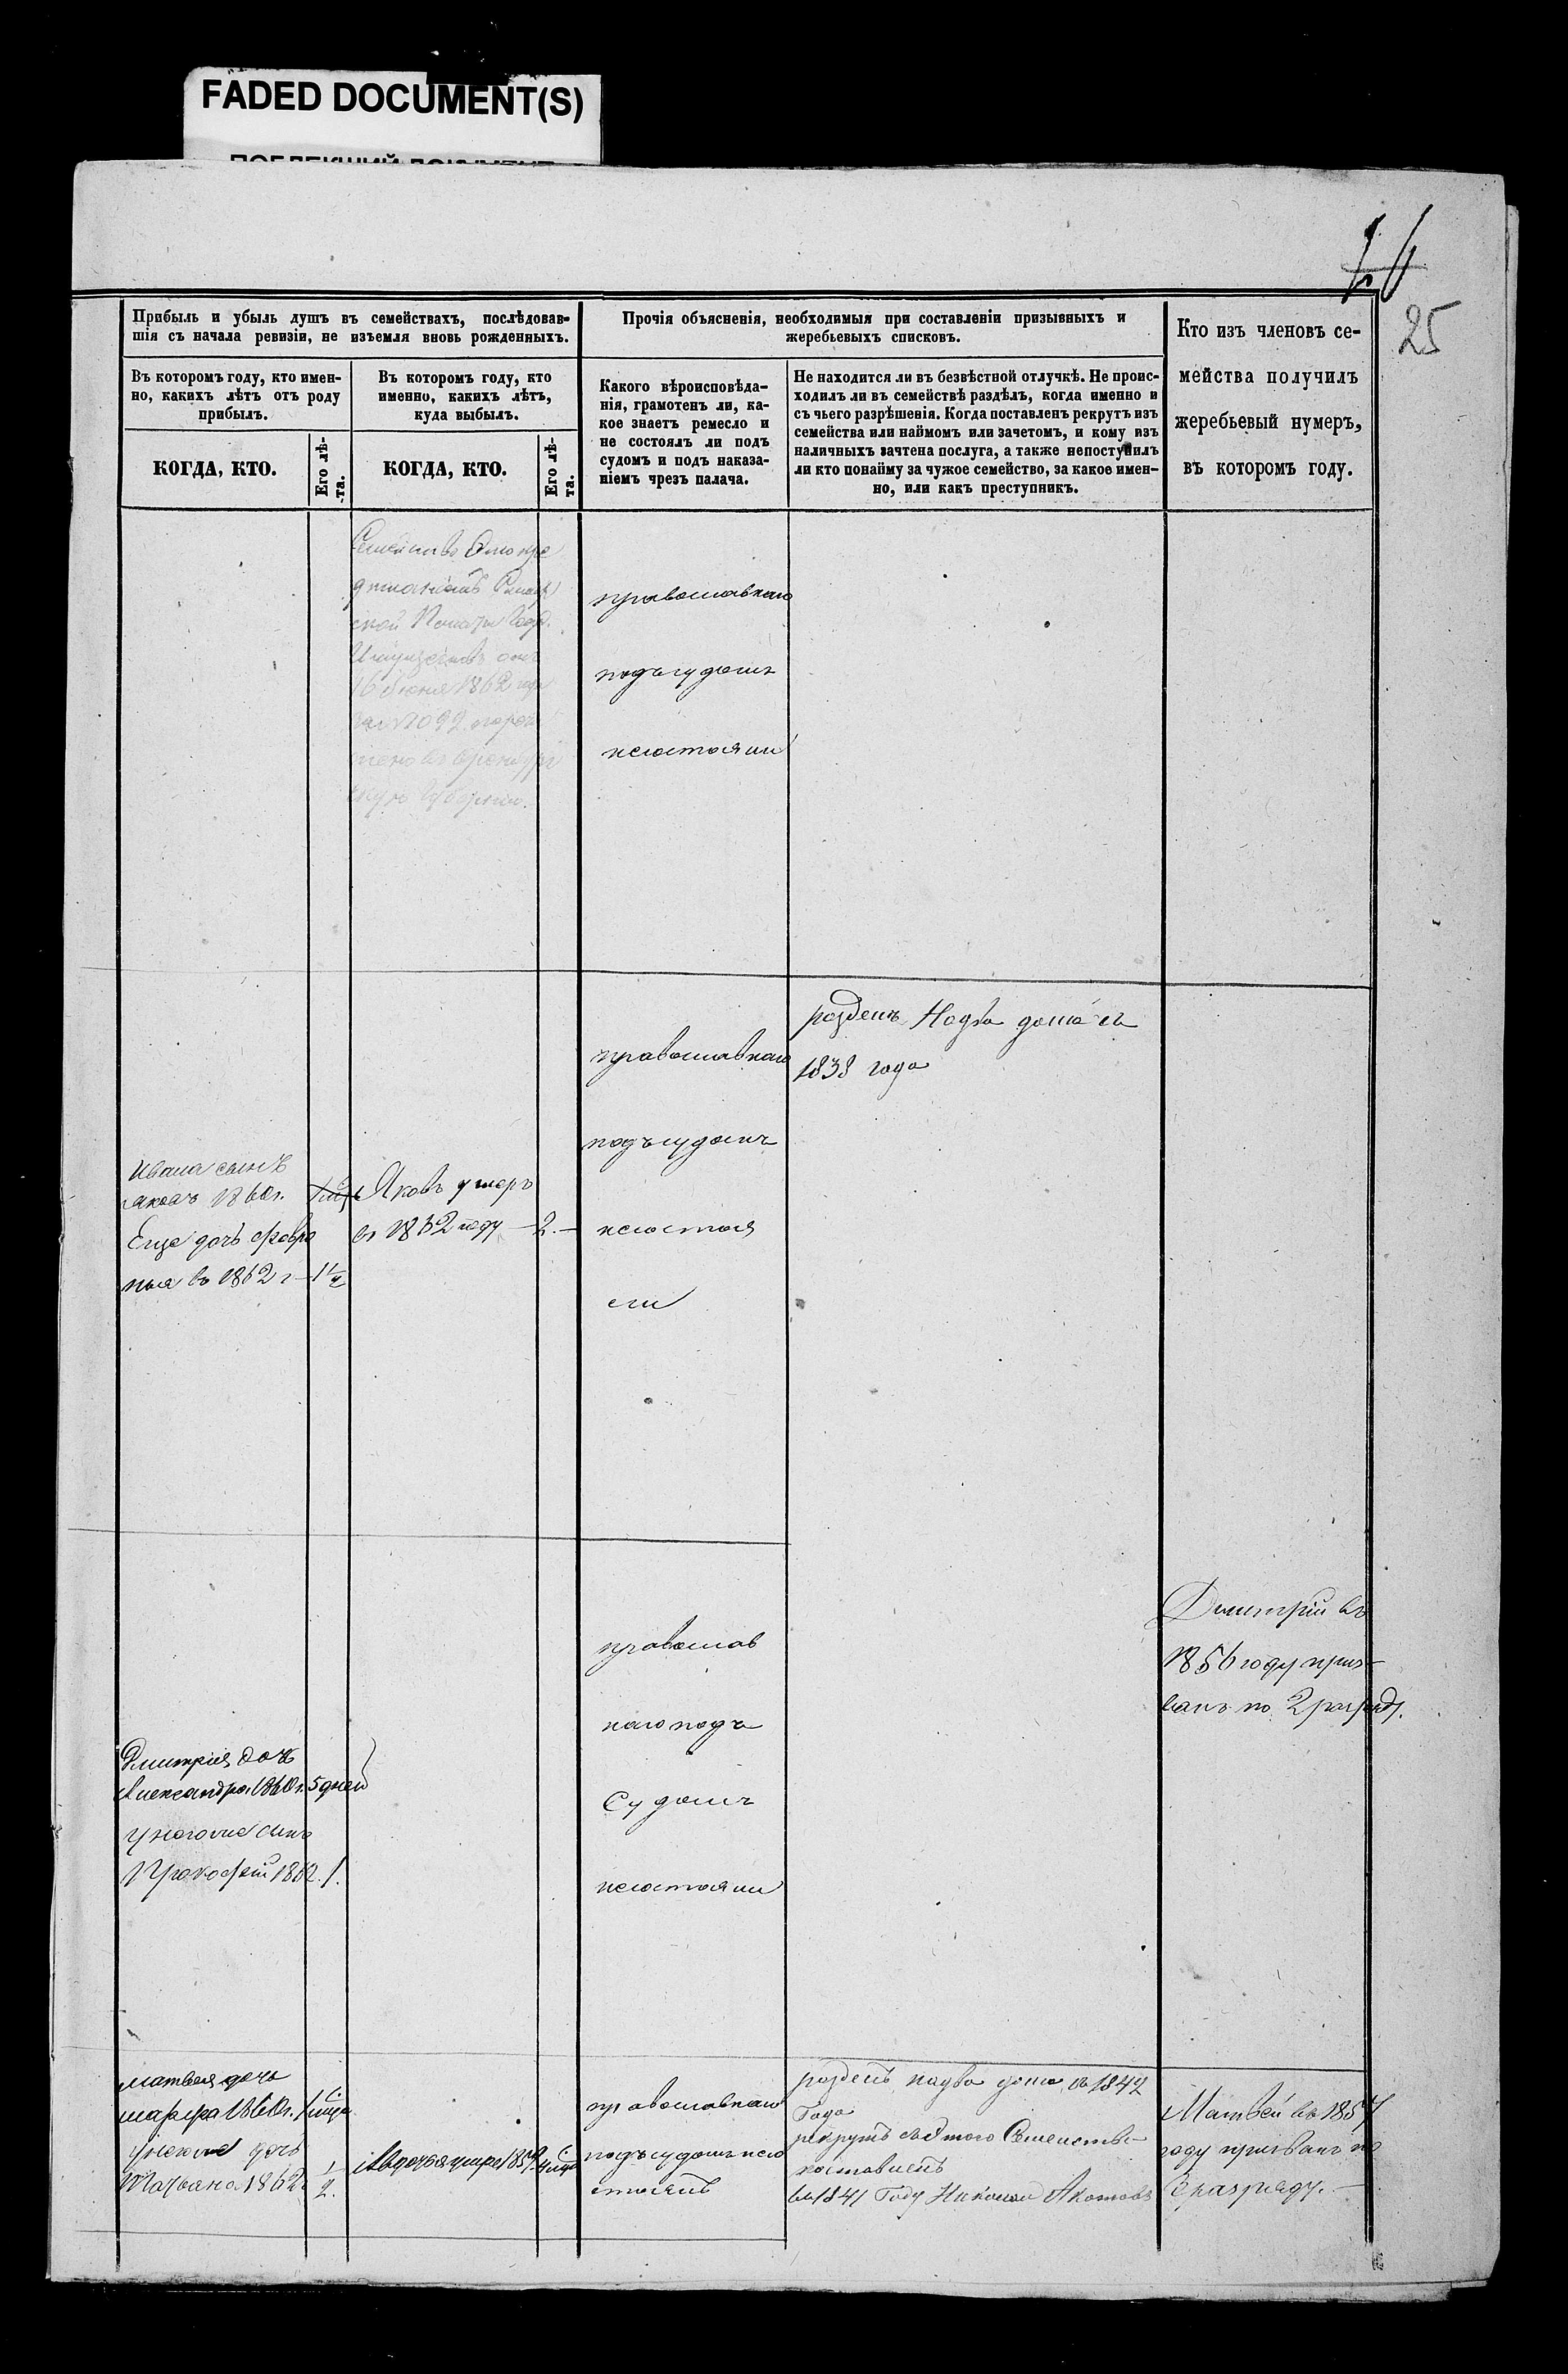 FADED DOCUMENT(S)
25
Прибыль и убыль душъ въ семействахъ, послѣдовав-
шія съ начала ревизіи, не изъемля вновь рожденныхъ.
Прочія объясненія, необходимыя при составленіи призывныхъ и
жеребьевыхъ списковъ.
Кто изъ членовъ се-
мейства получилъ
жеребьевый нумеръ,
въ которомъ году.
Въ которомъ году, кто имен-
но, какихъ лѣтъ отъ роду
прибылъ.
Въ которомъ году, кто
именно, какихъ лѣтъ,
куда выбылъ.
Какого вѣроисповѣда-
нія, грамотенъ ли, ка-
кое знаетъ ремесло и
не состоялъ ли подъ
судомъ и подъ наказа-
ніемъ чрезъ палача.
Не находится ли въ безвѣстной отлучкѣ. Не проис-
ходилъ ли въ семействѣ раздѣлъ, когда именно и
съ чьего разрѣшенія. Когда поставленъ рекрутъ изъ
семейства или наймомъ или зачетомъ, и кому изъ
наличныхъ зачтена послуга, а также непоступилъ
ли кто понайму за чужое семейство, за какое имен-
но, или какъ преступникъ.
КОГДА, КТО.
Его лѣ-
-та.
КОГДА, КТО.
Его лѣ-
та.
Семейство
ской Палаты Госуд.
Имуществъ отъ
16 Июня 1862 года
губернiю.
православнаго
подъсудомъ
несостояли
Ивана сынъ
Яковъ 1860г.
Еще дочь Февро
нья въ 1862 г 1 1/2
Яковъ умеръ
въ 1862 году — 2. —
православнаго
подъсудомъ
несостоя
сли
разделъ Надва дома съ
1838 года
Дмитрiя дочь
Александра 1860г. 5 дней
унегоже сынъ
Прокофей 1862. 1.
православ
наго подъ
Судомъ
несостояли
Дмитрiй въ
1856 году приз-
ванъ по 2 разряд.
Матвея дочь
Марфа 1860г.
унегоже дочь
Татьяна 1862 1/2.
православнаго
подъсудомъ несо
стоялъ
разделъ надва дома въ 1842
Года
рекрутъ съ этого Семейства
поставленъ
въ 1841 Году Николай
Матвей въ 1857
году призванъ по
разряду. —